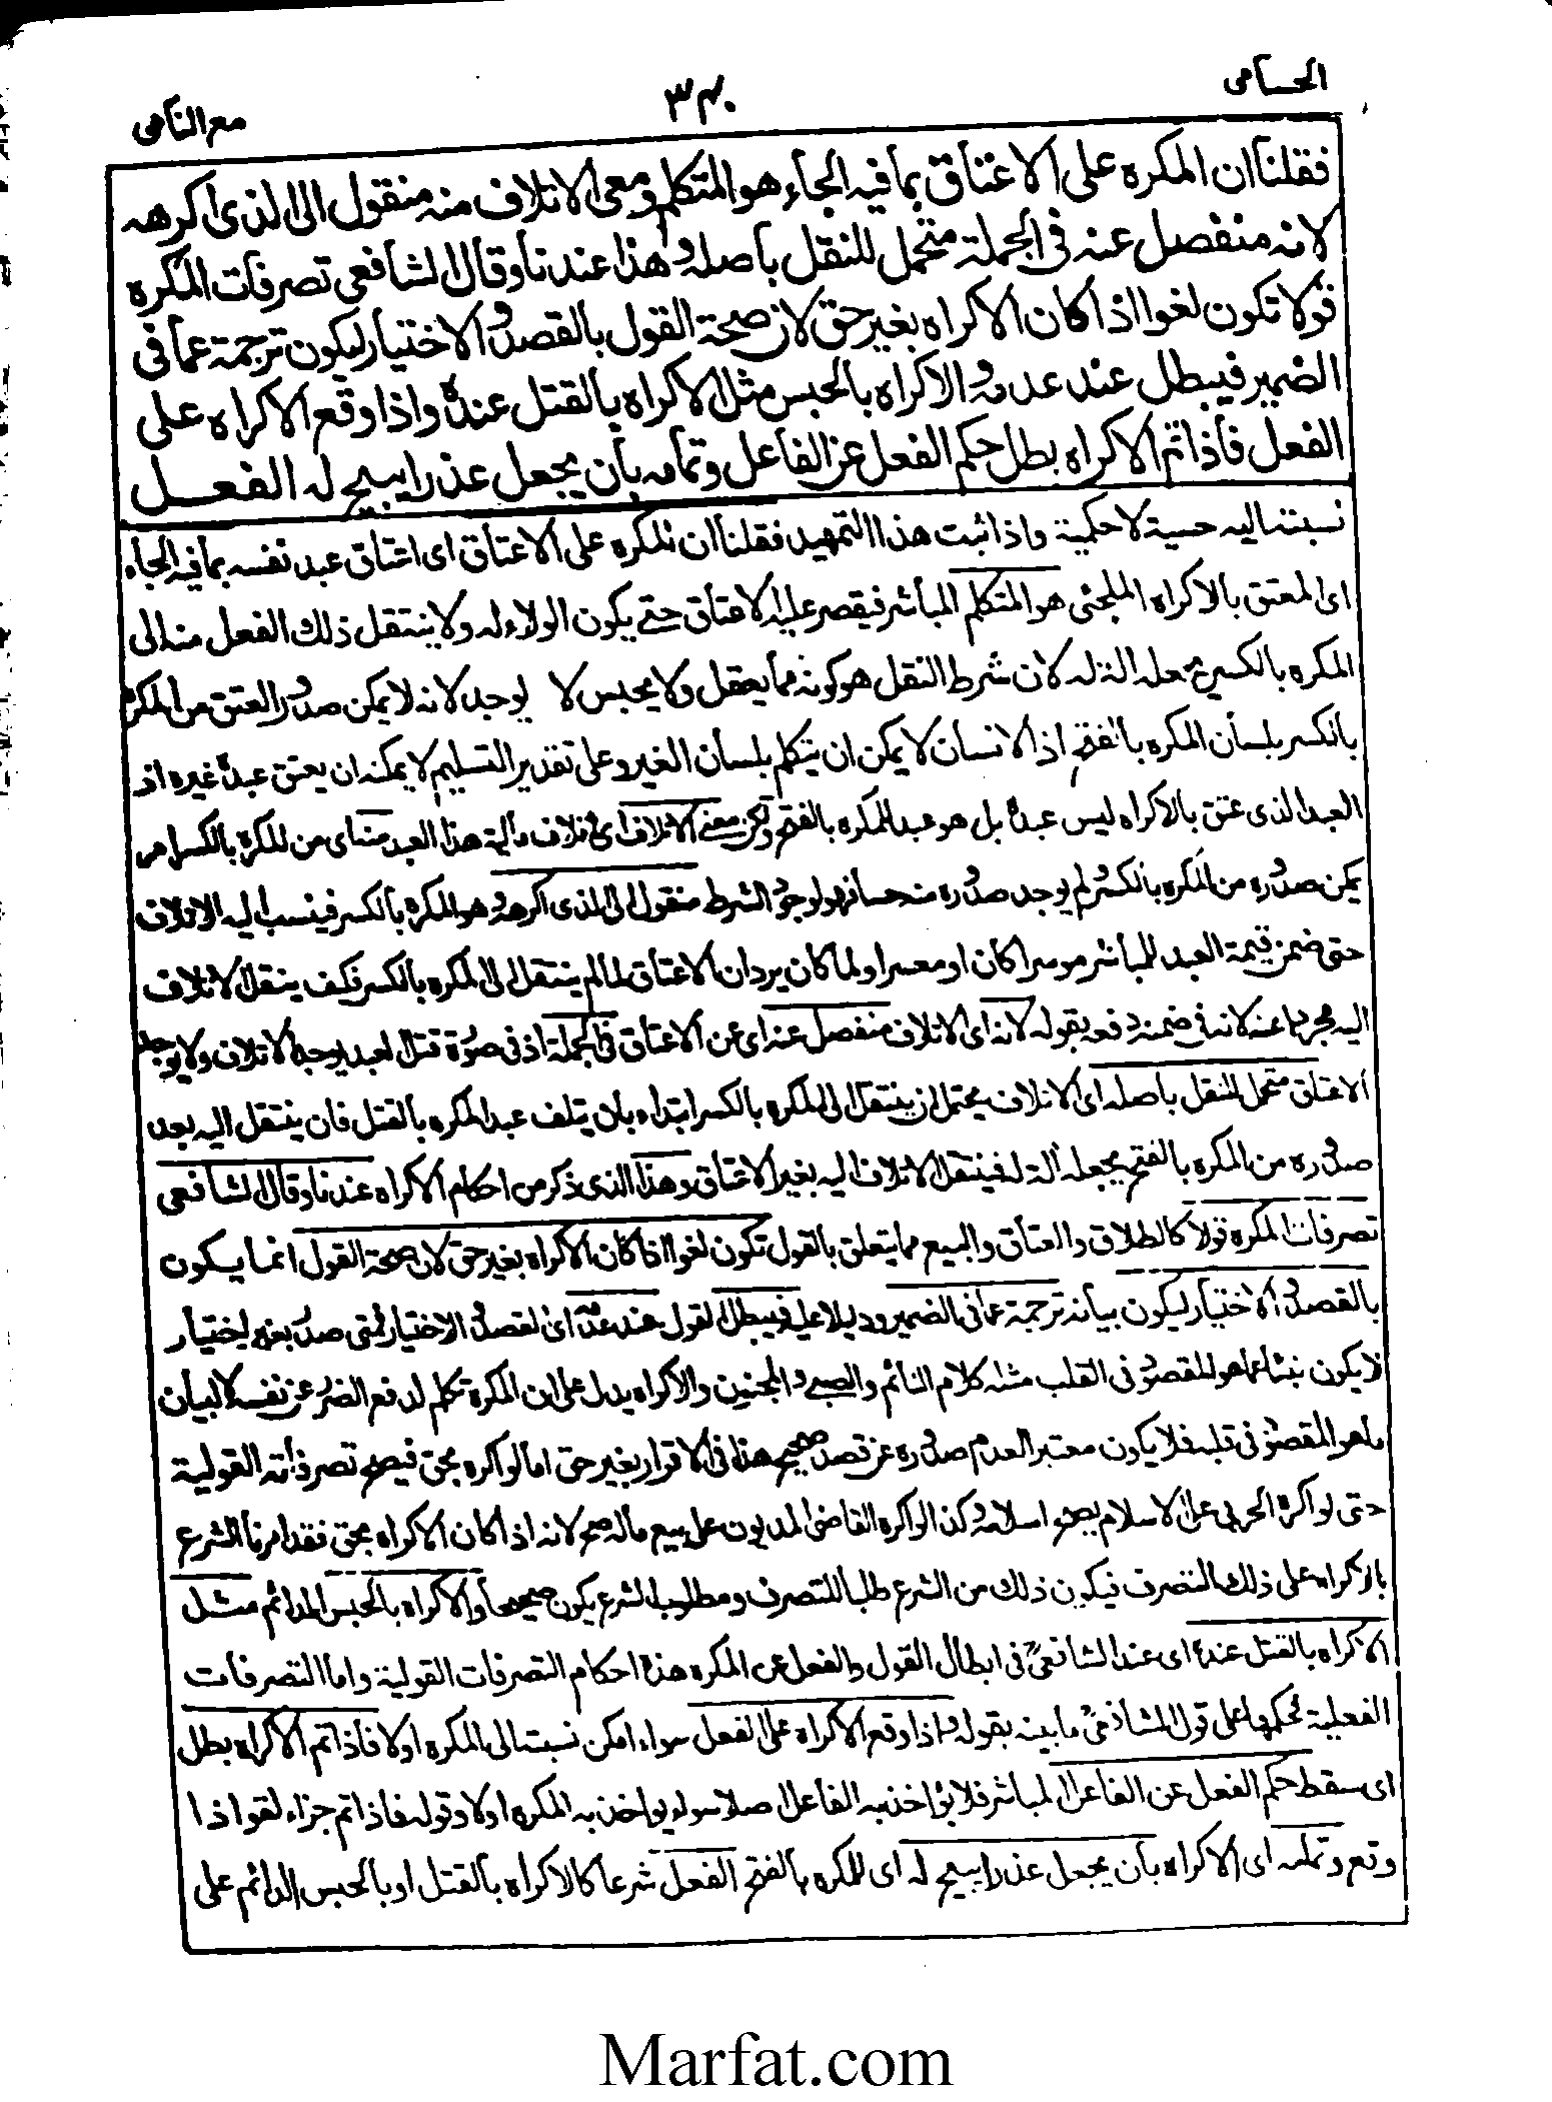 الحسامى
٣٤٠
مع النامى
فقلنا ان المكره على الاعتاق بما فيه الجاء هو المتكلم ومعنى الاتلاف منه منقول الى الذى اكرهه
لانه منفصل عنه فى الجملة متحمل للنقل باصله وهذا عندنا وقال الشافعى تصرفات المكره
قولا تكون لغوا اذا كان الاكراه بغير حق لان صحة القول بالقصد والاختيار ليكون ترجمة عما فى
الضمير فيبطل عند عدمه والاكراه بالحبس مثل الاكراه بالقتل عنده واذا وقع الاكراه على
الفعل فاذا تم الاكراه بطل حكم الفعل عن الفاعل وتمامه بان يجعل عذرا يبيح له الفعل
نسبته اليه حسية لا حكمية واذا ثبت هذا التمهيد فقلنا ان المكره على الاعتاق اى اعتاق عبد نفسه بما فيه الجاء
اى المعتق بالاكراه الملجئى هو المتكلم المباشر فيقصر عليه الاعتاق حتى يكون الولاء له ولا ينتقل ذلك الفعل منه الى
المكره بالكسر بجعله الة له لان شرط النقل هو كونه مما يعقل ولا يحبس لا يوجد لانه لا يمكن صدور العتق من المكره
بالكسر بلسان المكره بالفتح اذ الانسان لا يمكن ان يتكلم بلسان الغير وعلى تقدير التسليم لا يمكنه ان يعتق عبد غيره اذ
العبد الذى عتق بالاكراه ليس عبده بل هو عبد المكره بالفتح ولكن معنى الاتلاف اى اتلاف مالية هذا العبد منه اى من المكره بالكسر امر
يمكن صدوره من المكره بالكسر لم يوجد صدوره منه حسا فهو لوجود الشرط منقول الى الذى اكرهه وهو المكره بالكسر فينسب اليه الاتلاف
حتى ضمن قيمة العبد للمباشر موسرا كان او معسرا ولما كان يرد ان الاعتاق لما لم ينتقل الى المكره بالكسر فكيف ينتقل الاتلاف
اليه مجردا عنه لانه فى ضمنه دفعه بقوله لانه اى الاتلاف منفصل عنه اى عن الاعتاق فى الجملة اذ فى صورة قتل العبد يوجد الاتلاف ولا يوجد
الاعتاق متحمل للنقل باصله اى الاتلاف يحتمل ان ينتقل الى المكره بالكسر ابتداء بان يتلف عبد المكره بالقتل فان ينتقل اليه بعد
صدوره من المكره بالفتح بجعله الة له فينتقل الاتلاف اليه بغير الاعتاق وهذا الذى ذكر من احكام الاكراه عندنا وقال الشافعى
تصرفات المكره قولا كالطلاق والعتاق والبيع مما يتعلق بالقول تكون لغوا اذا كان الاكراه بغير حق لان صحة القول انما يكون
بالقصد والاختيار ليكون بيانه ترجمة عما فى الضمير ودليلا عليه فيبطل القول عند عدمه اى القصد والاختيار فمتى صدر بغير اختيار
لا يكون بناء عما هو المقصود فى القلب مثله كلام النائم والصبى والمجنون والاكراه يدل على ان المكره تكلم لدفع الضرر عن نفسه لا لبيان
ما هو المقصود فى قلبه فلا يكون معتبر العدم صدوره عن قصد صحيح هذا فى الاقرار بغير حق اما لو اكره بحق فيصح تصرفاته القولية
حتى لو اكره الحربى على الاسلام يصح اسلامه وكذا لو اكره القاضى المديون على بيع ماله صح لانه اذا كان الاكراه بحق فقد امرنا الشرع
بالاكراه على ذلك التصرف فيكون ذلك من الشرع طلبا للتصرف ومطلوب الشرع يكون صحيحا والاكراه بالحبس الدائم مثل
الاكراه بالقتل عنده اى عند الشافعى فى ابطال القول والفعل عن المكره هذه احكام التصرفات القولية واما التصرفات
الفعلية فحكمها على قول الشافعى ما بينه بقوله واذا وقع الاكراه على الفعل سواء امكن نسبته الى المكره اولا فاذا تم الاكراه بطل
اى سقط حكم الفعل عن الفاعل المباشر فلا يؤاخذ به الفاعل اصلا سواء يواخذ به المكره اولا وقوله فاذا تم جزاء لقوله اذا
وقع وتمامه اى الاكراه بان يجعل عذرا يبيح له اى للمكره بالفتح الفعل شرعا كالاكراه بالقتل او بالحبس الدائم على
Marfat.com